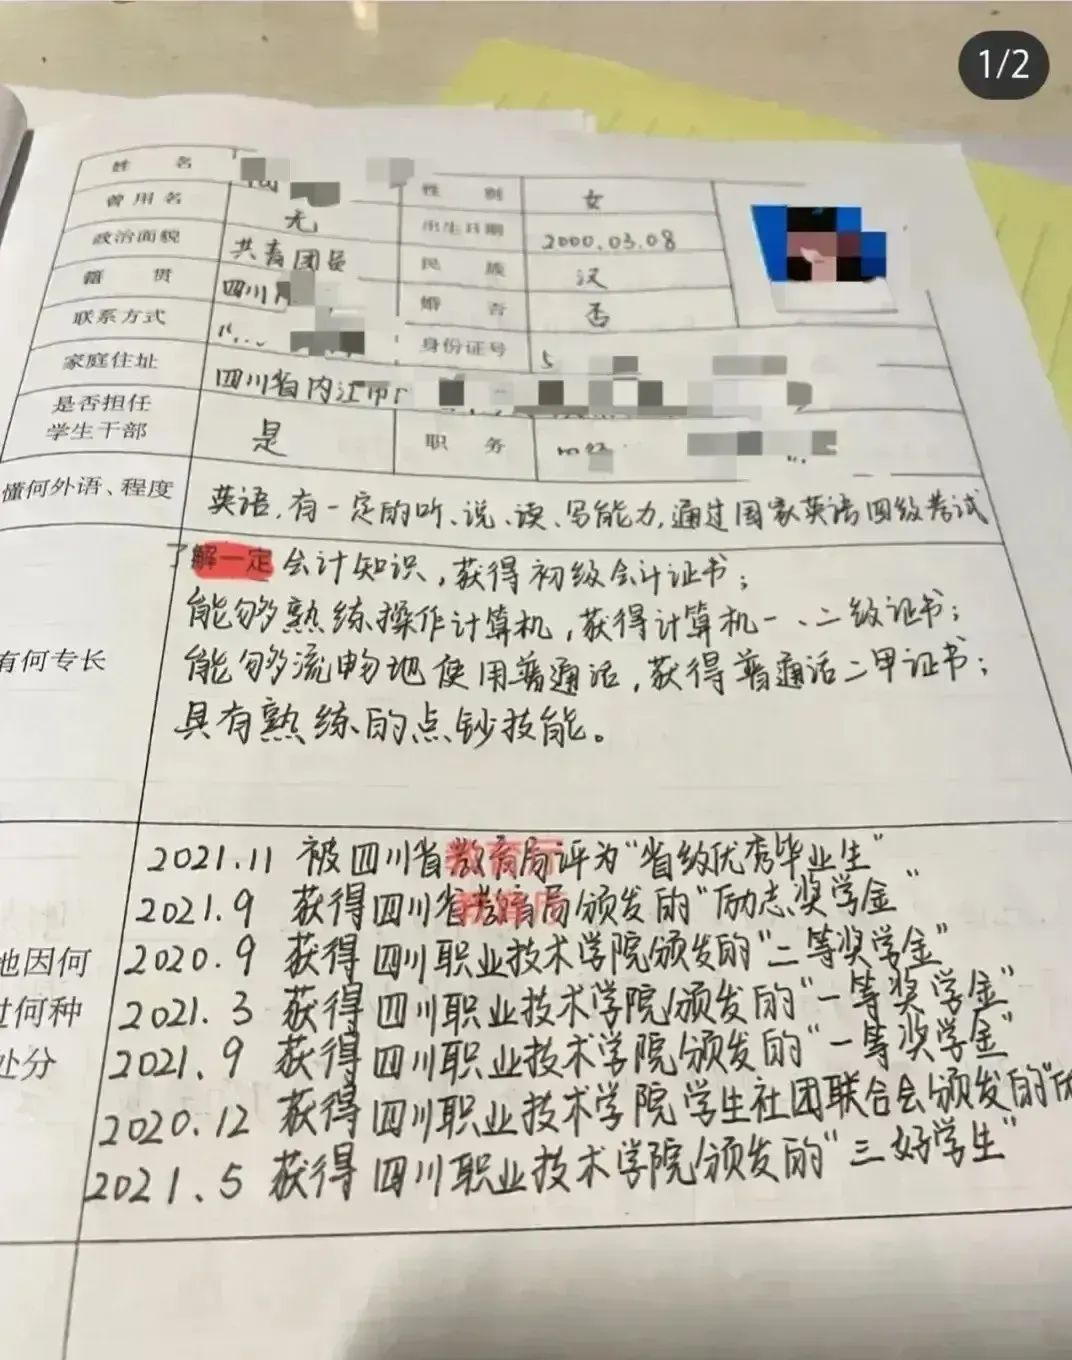 1/2
姓 名
性 别 女
曾用名 无
出生日期 2000.03.08
政治面貌 共青团员
民 族 汉
籍 贯 四川
婚 否 否
联系方式
身份证号 5
家庭住址 四川省内江市
是否担任
学生干部 是 职 务
懂何外语、程度 英语,有一定的听、说、读、写能力,通过国家英语四级考试
了解一定会计知识,获得初级会计证书;
能够熟练操作计算机,获得计算机一、二级证书;
有何专长 能够流畅地使用普通话,获得普通话二甲证书;
具有熟练的点钞技能。
2021.11 被四川省教育局评为“省级优秀毕业生”
2021.9 获得四川省教育局颁发的“励志奖学金”
地因何 2020.9 获得四川职业技术学院颁发的“二等奖学金”
过何种 2021.3 获得四川职业技术学院颁发的“一等奖学金”
处分 2021.9 获得四川职业技术学院颁发的“一等奖学金”
2020.12 获得四川职业技术学院学生社团联合会颁发的“
2021.5 获得四川职业技术学院颁发的“三好学生”